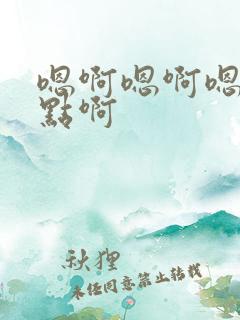 嗯啊嗯啊嗯
點啊
秋狸
未经同意禁止转载